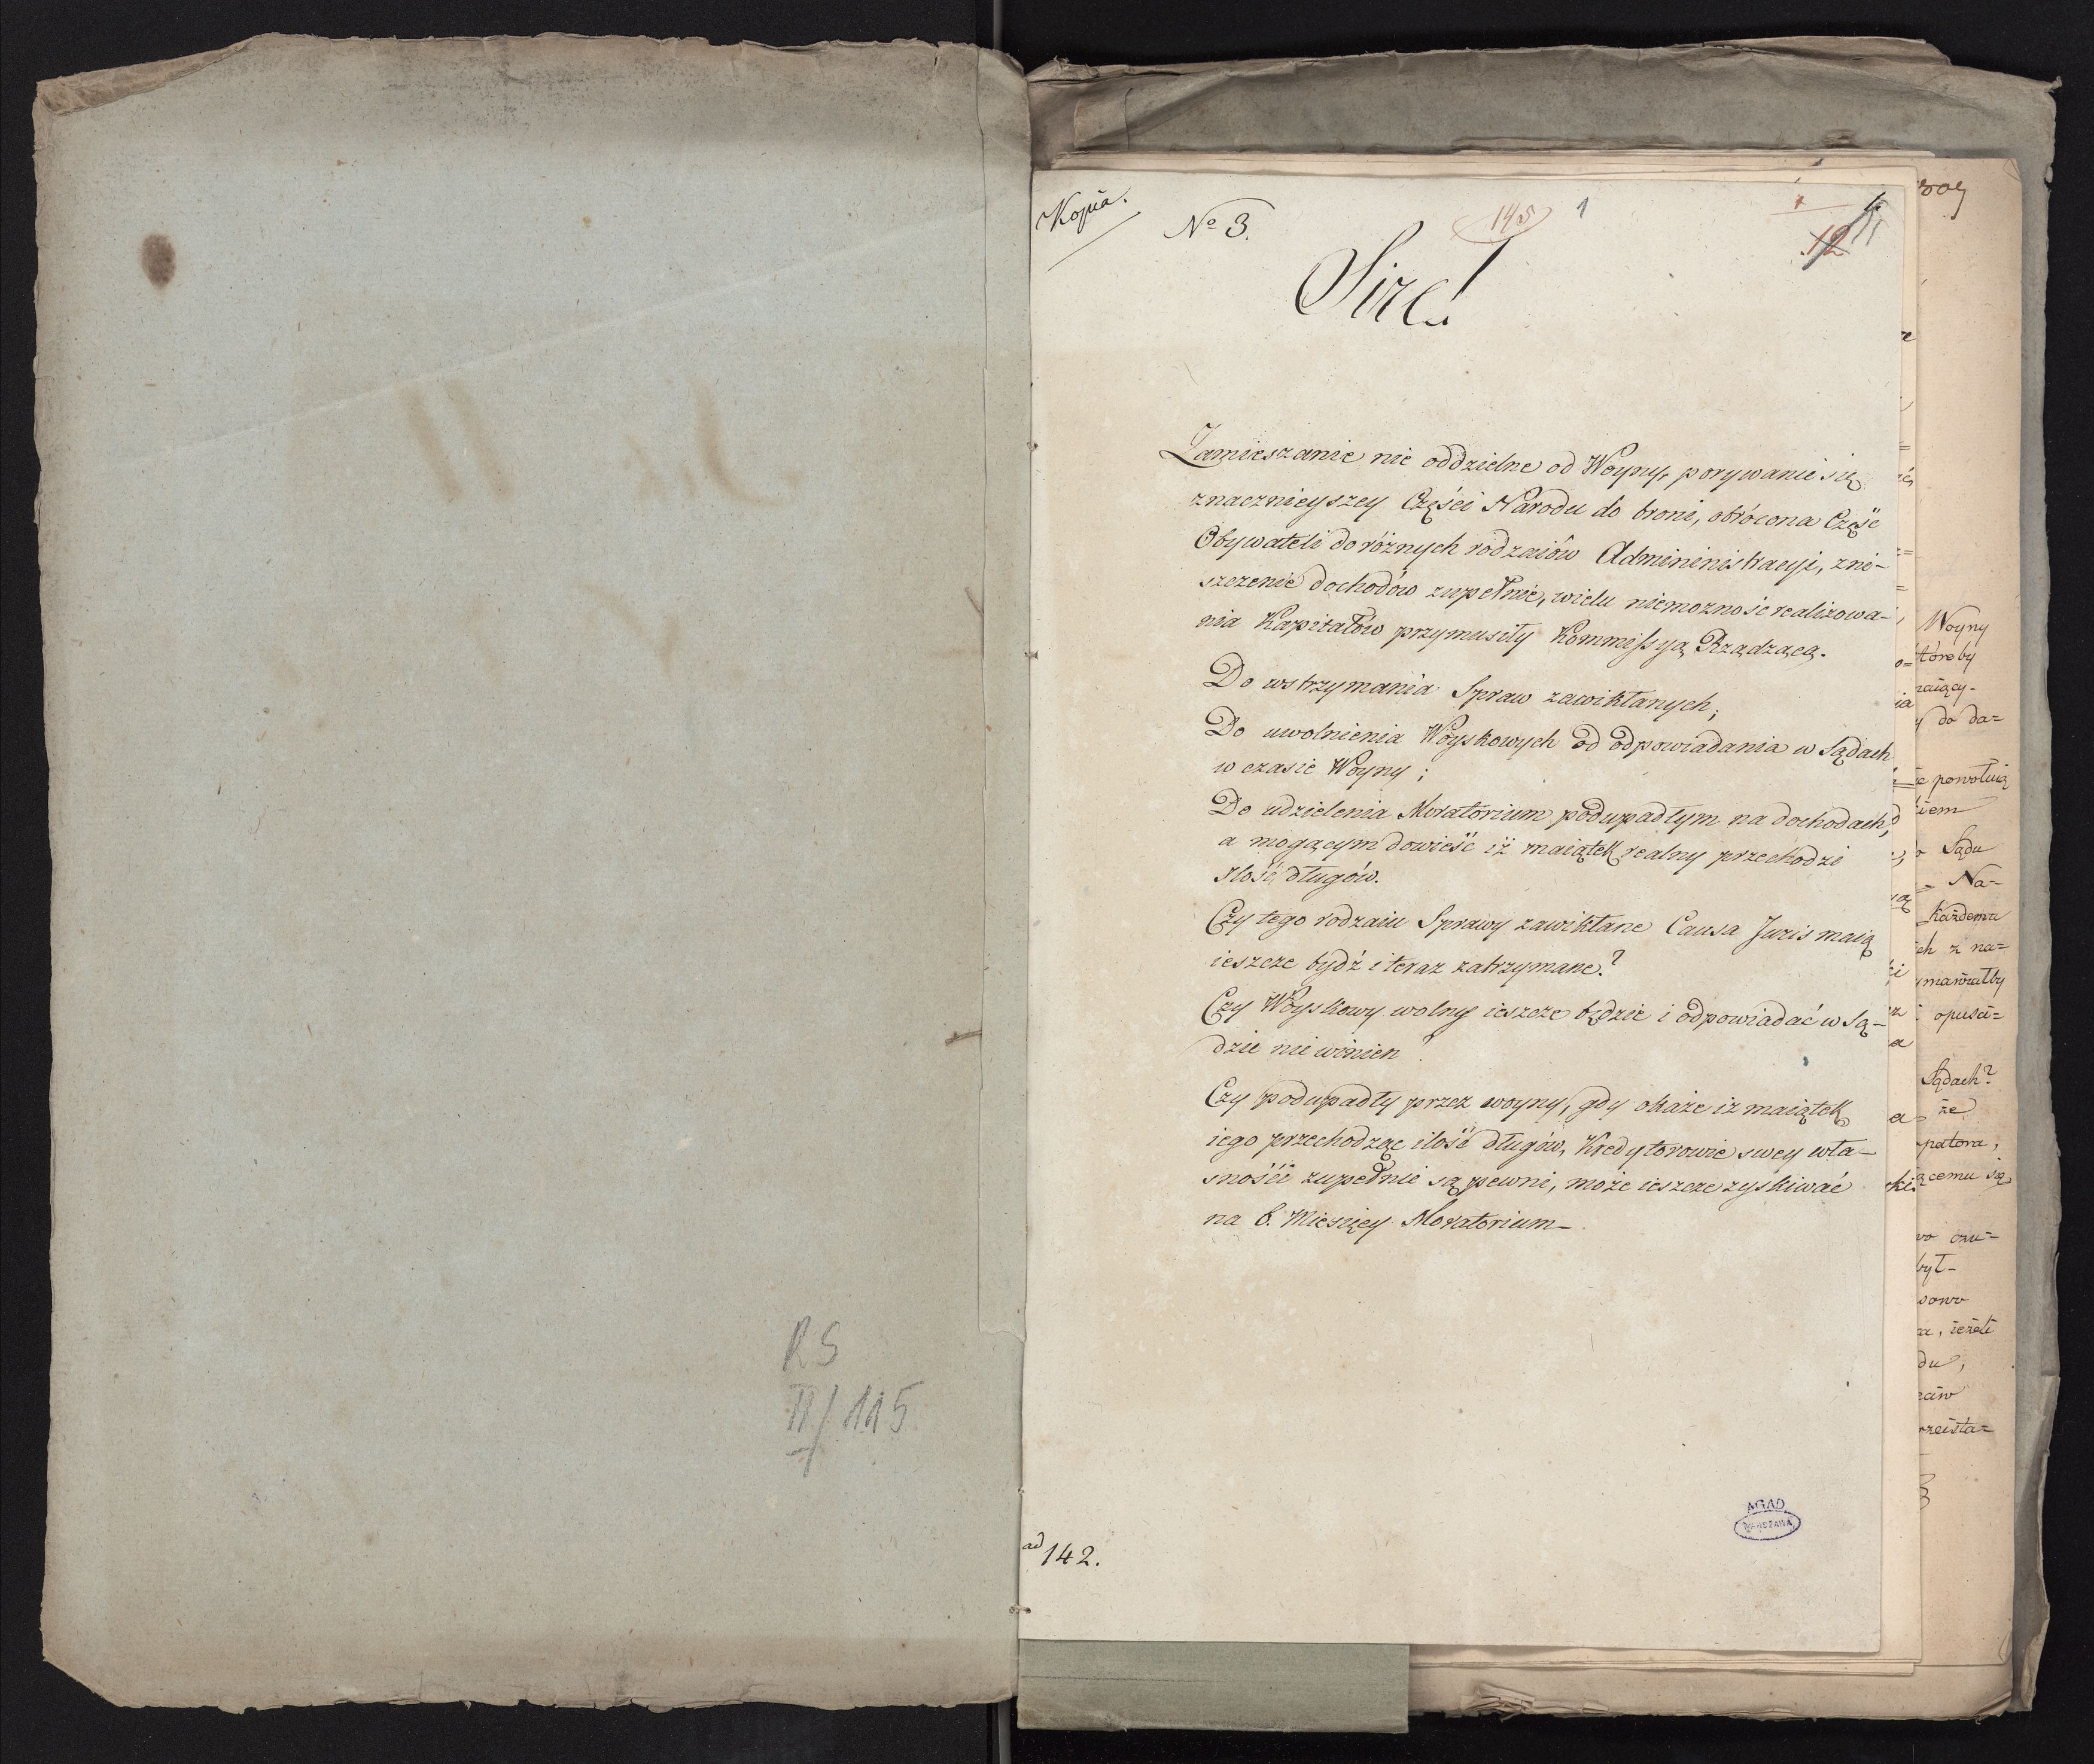 RS
II/115
Kopia.
No 3.
145
1
12
11
Sire!
Zamieszanie nie oddzielne od Woyny, porywanie się
znacznieyszey Części Narodu do broni, obrócona Część
Obywateli do różnych rodzaiów Admininistracyi, zni-
szczenie dochodów zupełnie, wielu niemożność realizowa-
nia Kapitałów przymusiły Kommissyą Rządzącą.
Do wstrzymania Spraw zawikłanych;
Do uwolnienia Woyskowych od odpowiadania w Sądach
w czasie Woyny;
Do udzielenia Moratorium podupadłym na dochodach,
a mogącym dowieść iż maiątek realny przechodzi
Ilość długów.
Czy tego rodzaiu Sprawy zawikłane Causa Juris maią
ieszcze bydź i teraz zatrzymane?
Czy Woyskowy wolny ieszcze będzie i odpowiadać w Są-
dzie nie winien
Czy podupadły przez woyny, gdy okaże iż maiątek
iego przechodząc ilość długów, Kredytorowie swey wła-
snośći zupełnie są pewni, może ieszcze zyskiwać
na 6. Miesięcy Moratorium-
AGAD
WARSZAWA
ad 142.
Woyny
któreby
y do da=
powołuią
Sądu
Na=
każdemu
ch z na=
opusc=
Sądach?
że
patora,
ącemu się
był-
, ieżeli